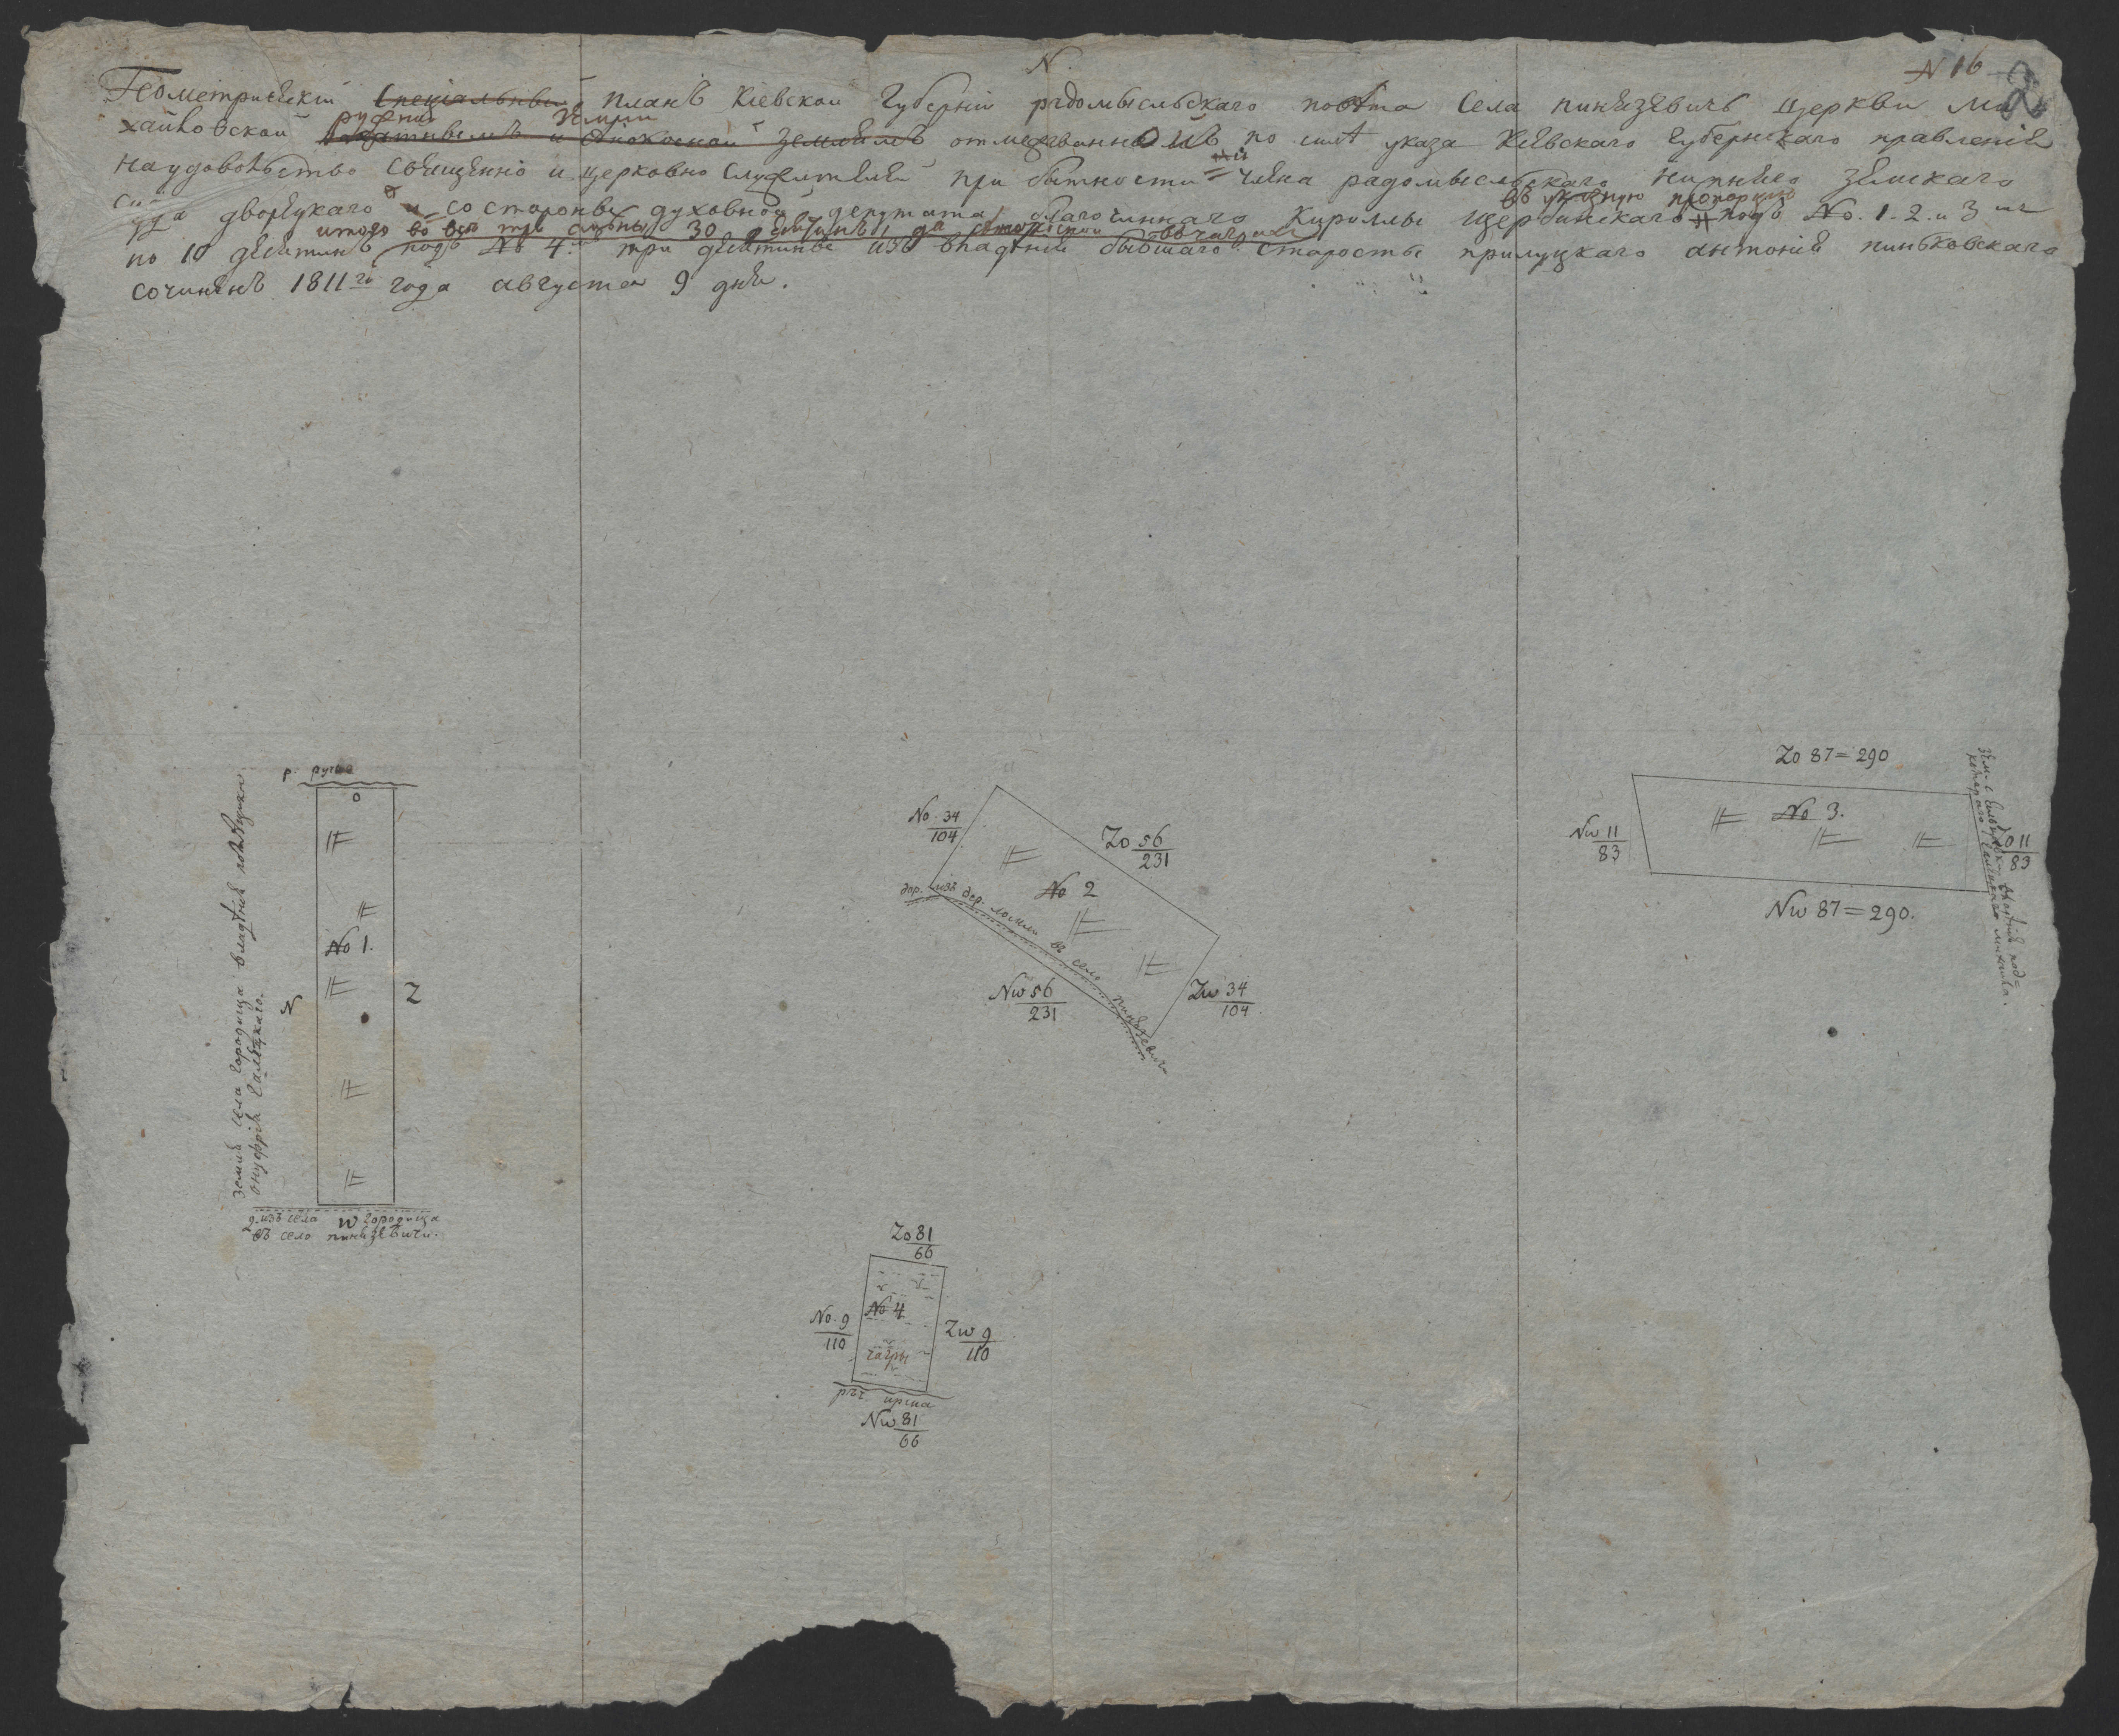 N.
N 16
2
Геометрический Спеціальный планъ Кіевской Губерніи радомысльскаго повѣта Села пинязевичъ Церкви Ми
рудней земли
хайловской и сѣнокосной землямъ отмежеванной по силѣ указа Кіевскаго Губернскаго правленія
на удовольство Священно и церковно служителей при бытности члена радомысльскаго нижнего земскаго
суда дворецкаго и со стороны духовной депутата благочиннаго Кириллы Щербинскаго подъ No. 1. 2. и 3 мъ
въ указную пропорцію
итого во всѣ три смѣны 30 десятинъ да
по 10 десятинъ подъ No 4. три десятины изъ владѣнія бывшаго старосты прилуцкаго антонія пиньковскаго
сочиненъ 1811го года августа 9 дня.
р. ручей
O
No 1.
N
Z
земли села городища владѣнія помѣщика
онуфрія Галецкаго.
д. изъ села W городища
въ село пинязевичи.
No. 34
104
Zo 56
231
No 2
дор. изъ дер. въ село пинязевичи
Nw 56
231
Zw 34
104
Zo 87 = 290
Nw 11
83
No 3.
Zo 11
83
Nw 87 = 290.
Zo 81
66
No. 9
110
No 4
Zw 9
110
рѣч. ирша
Nw 81
66